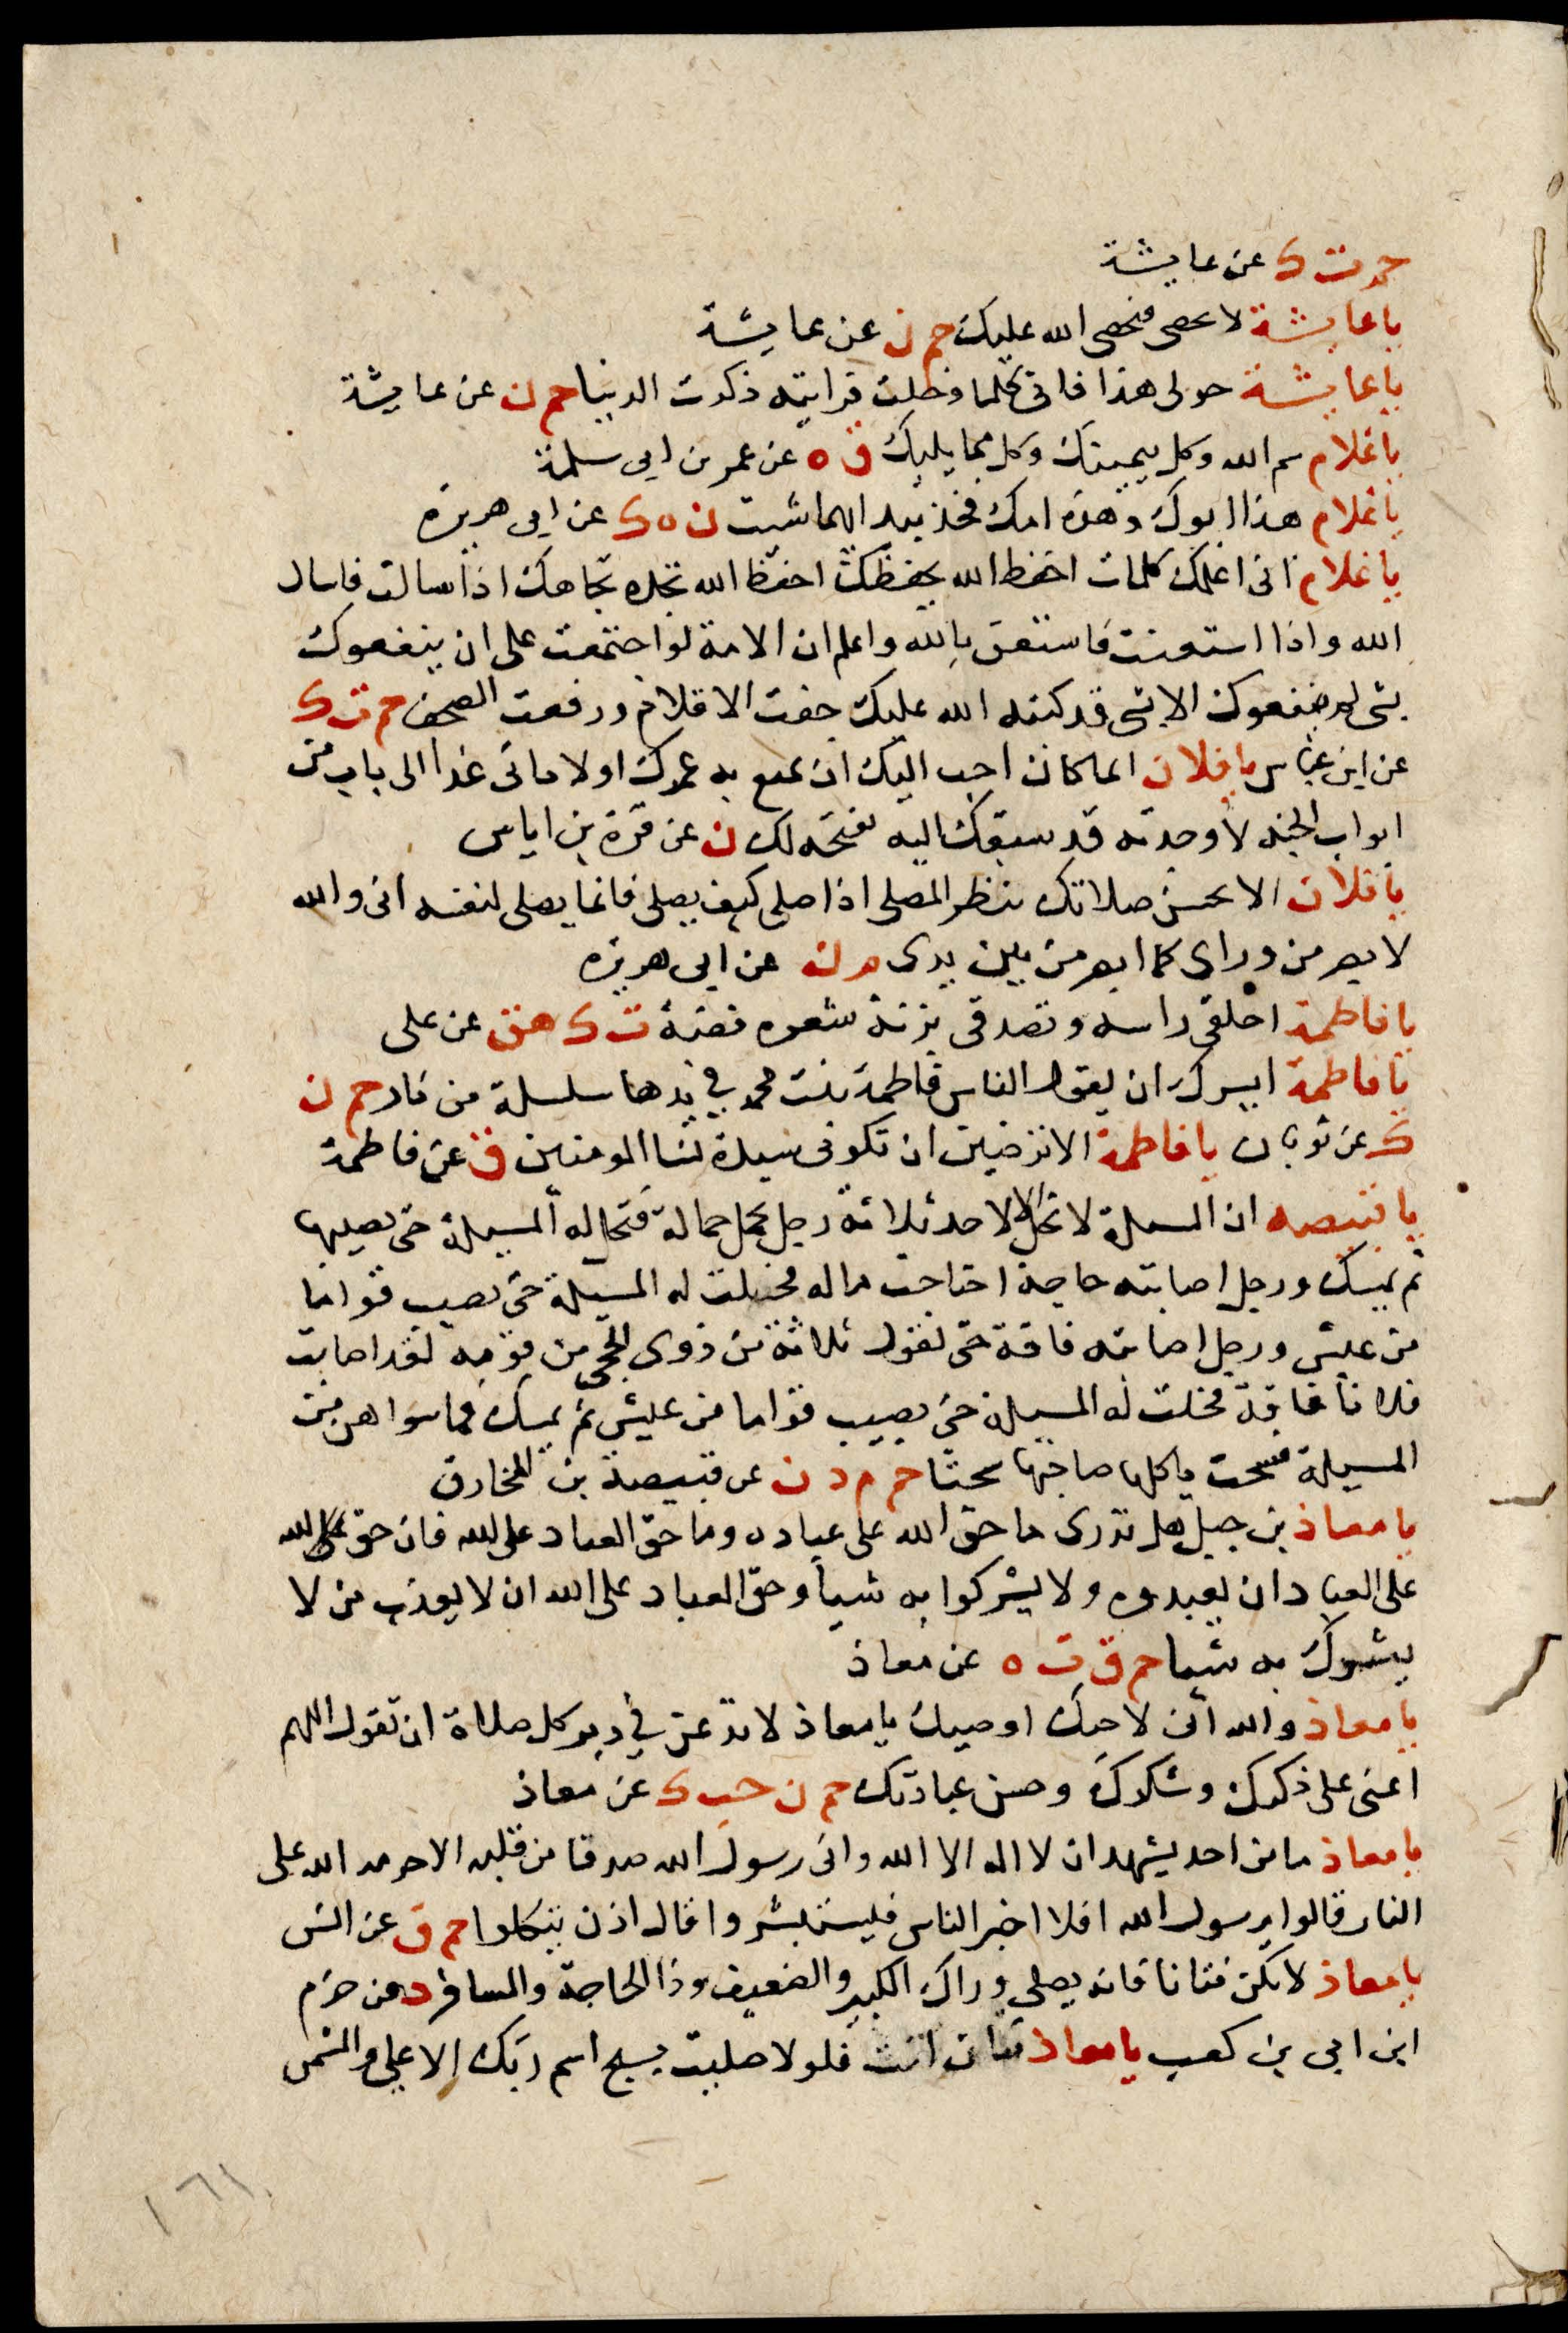 حم ت ك عن عايشة
يا عايشة لا تحصى فيحصى الله عليك حم ن عن عايشة
يا عايشة حولى هذا فانى كلما دخلت فرايته ذكرت الدنيا حم ن عن عايشة
يا غلام سم الله وكل بيمينك وكل مما يليك ق ه عن عمر بن ابى سلمة
يا غلام هذا ابوك وهذه امك فخذ بيد ايهما شيت ن ه ك عن ابى هريرة
يا غلام انى اعلمك كلمات احفظ الله يحفظك احفظ الله تجده تجاهك اذا سالت فاسال
الله واذا استعنت فاستعن بالله واعلم ان الامة لو اجتمعت على ان ينفعوك
بشى لم ينفعوك الا بشى قد كتبه الله عليك جفت الاقلام ورفعت الصحف حم ت ك
عن ابن عباس يا فلان ايما كان احب اليك ان تمتع به عمرك او لا تاتى غدا الى باب من
ابواب الجنه لا وجدته قد سبقك اليه يفتحه لك ن عن قرة بن اياس
يا فلان الا تحسن صلاتك ينظر المصلى اذا صلى كيف يصلى فانما يصلى لنفسه انى والله
لابصر من وراى كما ابصر من بين يدى م ن عن ابى هريرة
يا فاطمة احلقى راسه وتصدقى بزنة شعره فضة ت ك هق عن على
يا فاطمة ايسرك ان يقول الناس فاطمة بنت محمد في يدها سلسلة من نار حم ن
ك عن ثوبان يا فاطمة الا ترضين ان تكونى سيدة نسا المومنين ق عن فاطمة
يا قبيصه ان المسيلة لا تحل الا لاحد ثلاثة رجل تحمل حمالة فتحل له المسيلة حتى يصيبها
ثم يمسك ورجل اصابته حاجة اجتاحت ماله فحلت له المسيلة حتى يصيب قواما
من عيش ورجل اصابته فاقة حتى يقول ثلاثة من ذوى الحجى من قومه لقد اصابت
فلانا فاقة فحلت له المسيلة حتى يصيب قواما من عيش ثم يمسك فما سواهن من
المسيلة سحت ياكلها صاحبها سحتا حم م د ن عن قبيصة بن المخارق
يا معاذ بن جبل هل تدرى ما حق الله على عباده وما حق العباد على الله فان حق الله
على العباد ان يعبدوه ولا يشركوا به شيأ وحق العباد على الله ان لا يعذب من لا
يشرك به شيا حم ق ت ه عن معاذ
يا معاذ والله انى لاحبك اوصيك يا معاذ لا تدعن في دبر كل صلاة ان تقول اللهم
اعنى على ذكرك وشكرك وحسن عبادتك حم ن حب ك عن معاذ
يا معاذ ما من احد يشهد ان لا اله الا الله وانى رسول الله صدقا من قلبه الا حرمه الله على
النار قالوا يرسول الله افلا اخبر الناس فيستبشروا قال اذن يتكلوا حم ق عن انس
يا معاذ لا تكن فتانا فانه يصلى وراك الكبير والضعيف وذا الحاجة والمسافر د عن حزم
ابن ابى بن كعب يا معاذ فتان انت فلولا صليت بسبح اسم ربك الاعلى والشمس
١٦١